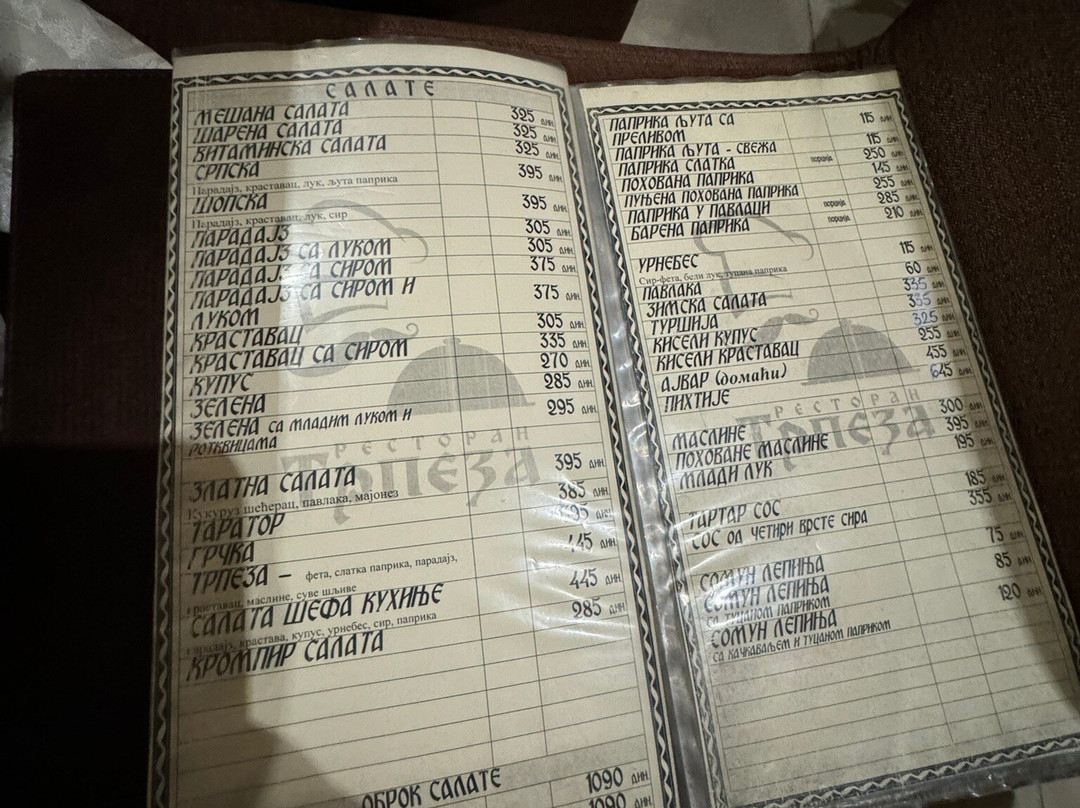 САЛАТЕ
МЕШАНА САЛАТА 325 дин.
ШАРЕНА САЛАТА 325 дин.
ВИТАМИНСКА САЛАТА 325 дин.
СРПСКА 395 дин.
Парадајз, краставац, лук, љута паприка
ШОПСКА 395 дин.
Парадајз, краставац, лук, сир
ПАРАДАЈЗ 305 дин.
ПАРАДАЈЗ СА ЛУКОМ 305 дин.
ПАРАДАЈЗ СА СИРОМ 375 дин.
ПАРАДАЈЗ СА СИРОМ И 375 дин.
ЛУКОМ
КРАСТАВАЦ 305 дин.
КРАСТАВАЦ СА СИРОМ 335 дин.
КУПУС 270 дин.
ЗЕЛЕНА 285 дин.
ЗЕЛЕНА СА МЛАДИМ ЛУКОМ И 295 дин.
РОТКВИЦАМА
РЕСТОРАН
ТРПЕЗА
ЗЛАТНА САЛАТА 395 дин.
Кукуруз шећерац, павлака, мајонез
ТАРАТОР 385 дин.
ГРЧКА 395 дин.
ТРПЕЗА – фета, слатка паприка, парадајз, 445 дин.
краставац, маслине, суве шљиве
САЛАТА ШЕФА КУХИЊЕ 445 дин.
парадајз, крастава, купус, урнебес, сир, паприка
КРОМПИР САЛАТА 285 дин.
ОБРОК САЛАТЕ 1090 дин.
1090 дин.
ПАПРИКА ЉУТА СА 115 дин.
ПРЕЛИВОМ
ПАПРИКА ЉУТА - СВЕЖА 115 дин.
ПАПРИКА СЛАТКА порција 250 дин.
ПОХОВАНА ПАПРИКА 145 дин.
ПУЊЕНА ПОХОВАНА ПАПРИКА 255 дин.
ПАПРИКА У ПАВЛАЦИ порција 285 дин.
БАРЕНА ПАПРИКА 210 дин.
УРНЕБЕС 115 дин.
Сир-фета, бели лук, туцана паприка
ПАВЛАКА 60 дин.
ЗИМСКА САЛАТА 335 дин.
ТУРШИЈА 335 дин.
КИСЕЛИ КУПУС 325 дин.
КИСЕЛИ КРАСТАВАЦ 255 дин.
АЈВАР (домаћи) 455 дин.
ПИХТИЈЕ 645 дин.
РЕСТОРАН
ТРПЕЗА
МАСЛИНЕ 300 дин.
ПОХОВАНЕ МАСЛИНЕ 395 дин.
МЛАДИ ЛУК 195 дин.
ТАРТАР СОС 185 дин.
СОС ОД ЧЕТИРИ ВРСТЕ СИРА 355 дин.
СОМУН ЛЕПИЊА 75 дин.
СОМУН ЛЕПИЊА 85 дин.
СА ТУЦАНОМ ПАПРИКОМ
СОМУН ЛЕПИЊА 120 дин.
СА КАЧКАВАЉЕМ И ТУЦАНОМ ПАПРИКОМ